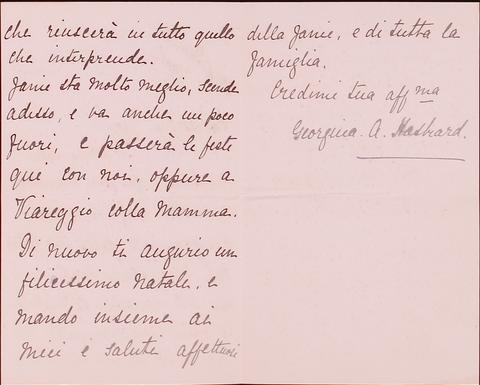 che riuscerà in tutto quello
che interprende.
Janie sta molto meglio, scende
adesso, e va anche un poco
fuori, e passerà le feste
qui con noi, oppure a
Viareggio colla Mamma.
Di nuovo ti augurio un
filicessimo Natale, e
mando insieme ai
miei i saluti affettuosi
della Janie, e di tutta la
famiglia.
Credimi tua affma
Georgina. A.